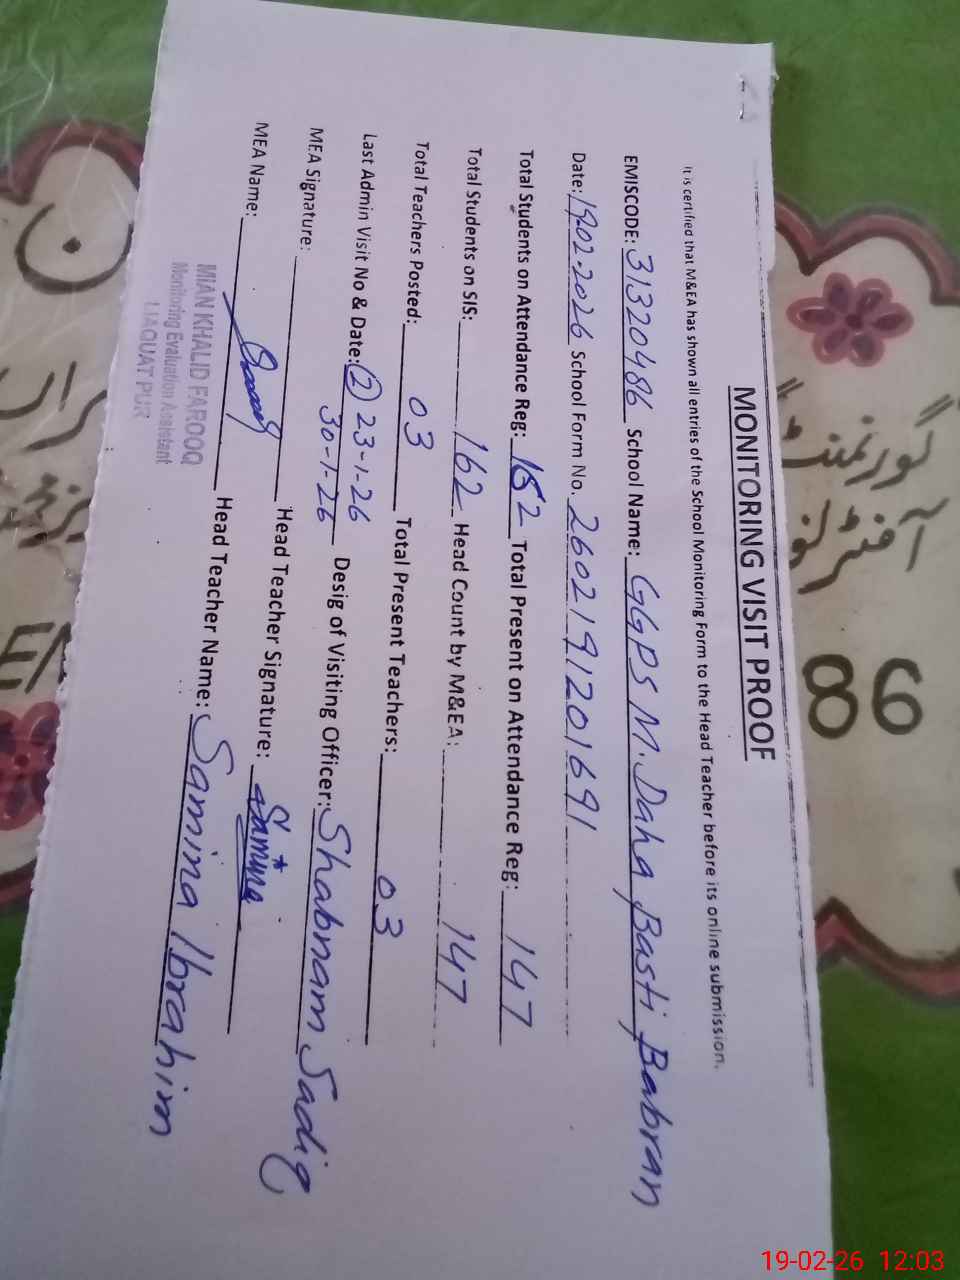 MONITORING VISIT PROOF
It is certified that M&EA has shown all entries of the School Monitoring Form to the Head Teacher before its online submission.
EMISCODE: 31320486 School Name: GGPS M. Daha Basti Babran
Date: 19.02.2026 School Form No. 2602191201691
Total Students on Attendance Reg: 162 Total Present on Attendance Reg: 147
Total Students on SIS: 162 Head Count by M&EA: 147
Total Teachers Posted: 03 Total Present Teachers: 03
Last Admin Visit No & Date: (2) 23-1-26 30-1-26 Desig of Visiting Officer: Shabnam Sadiq
MEA Signature: Head Teacher Signature: Samina
MEA Name: Head Teacher Name: Samina Ibrahim
MIAN KHALID FAROOQ
Monitoring Evaluation Assistant
LIAQUAT PUR
گورنمنٹ
آفٹرنو
86
19-02-26 12:03